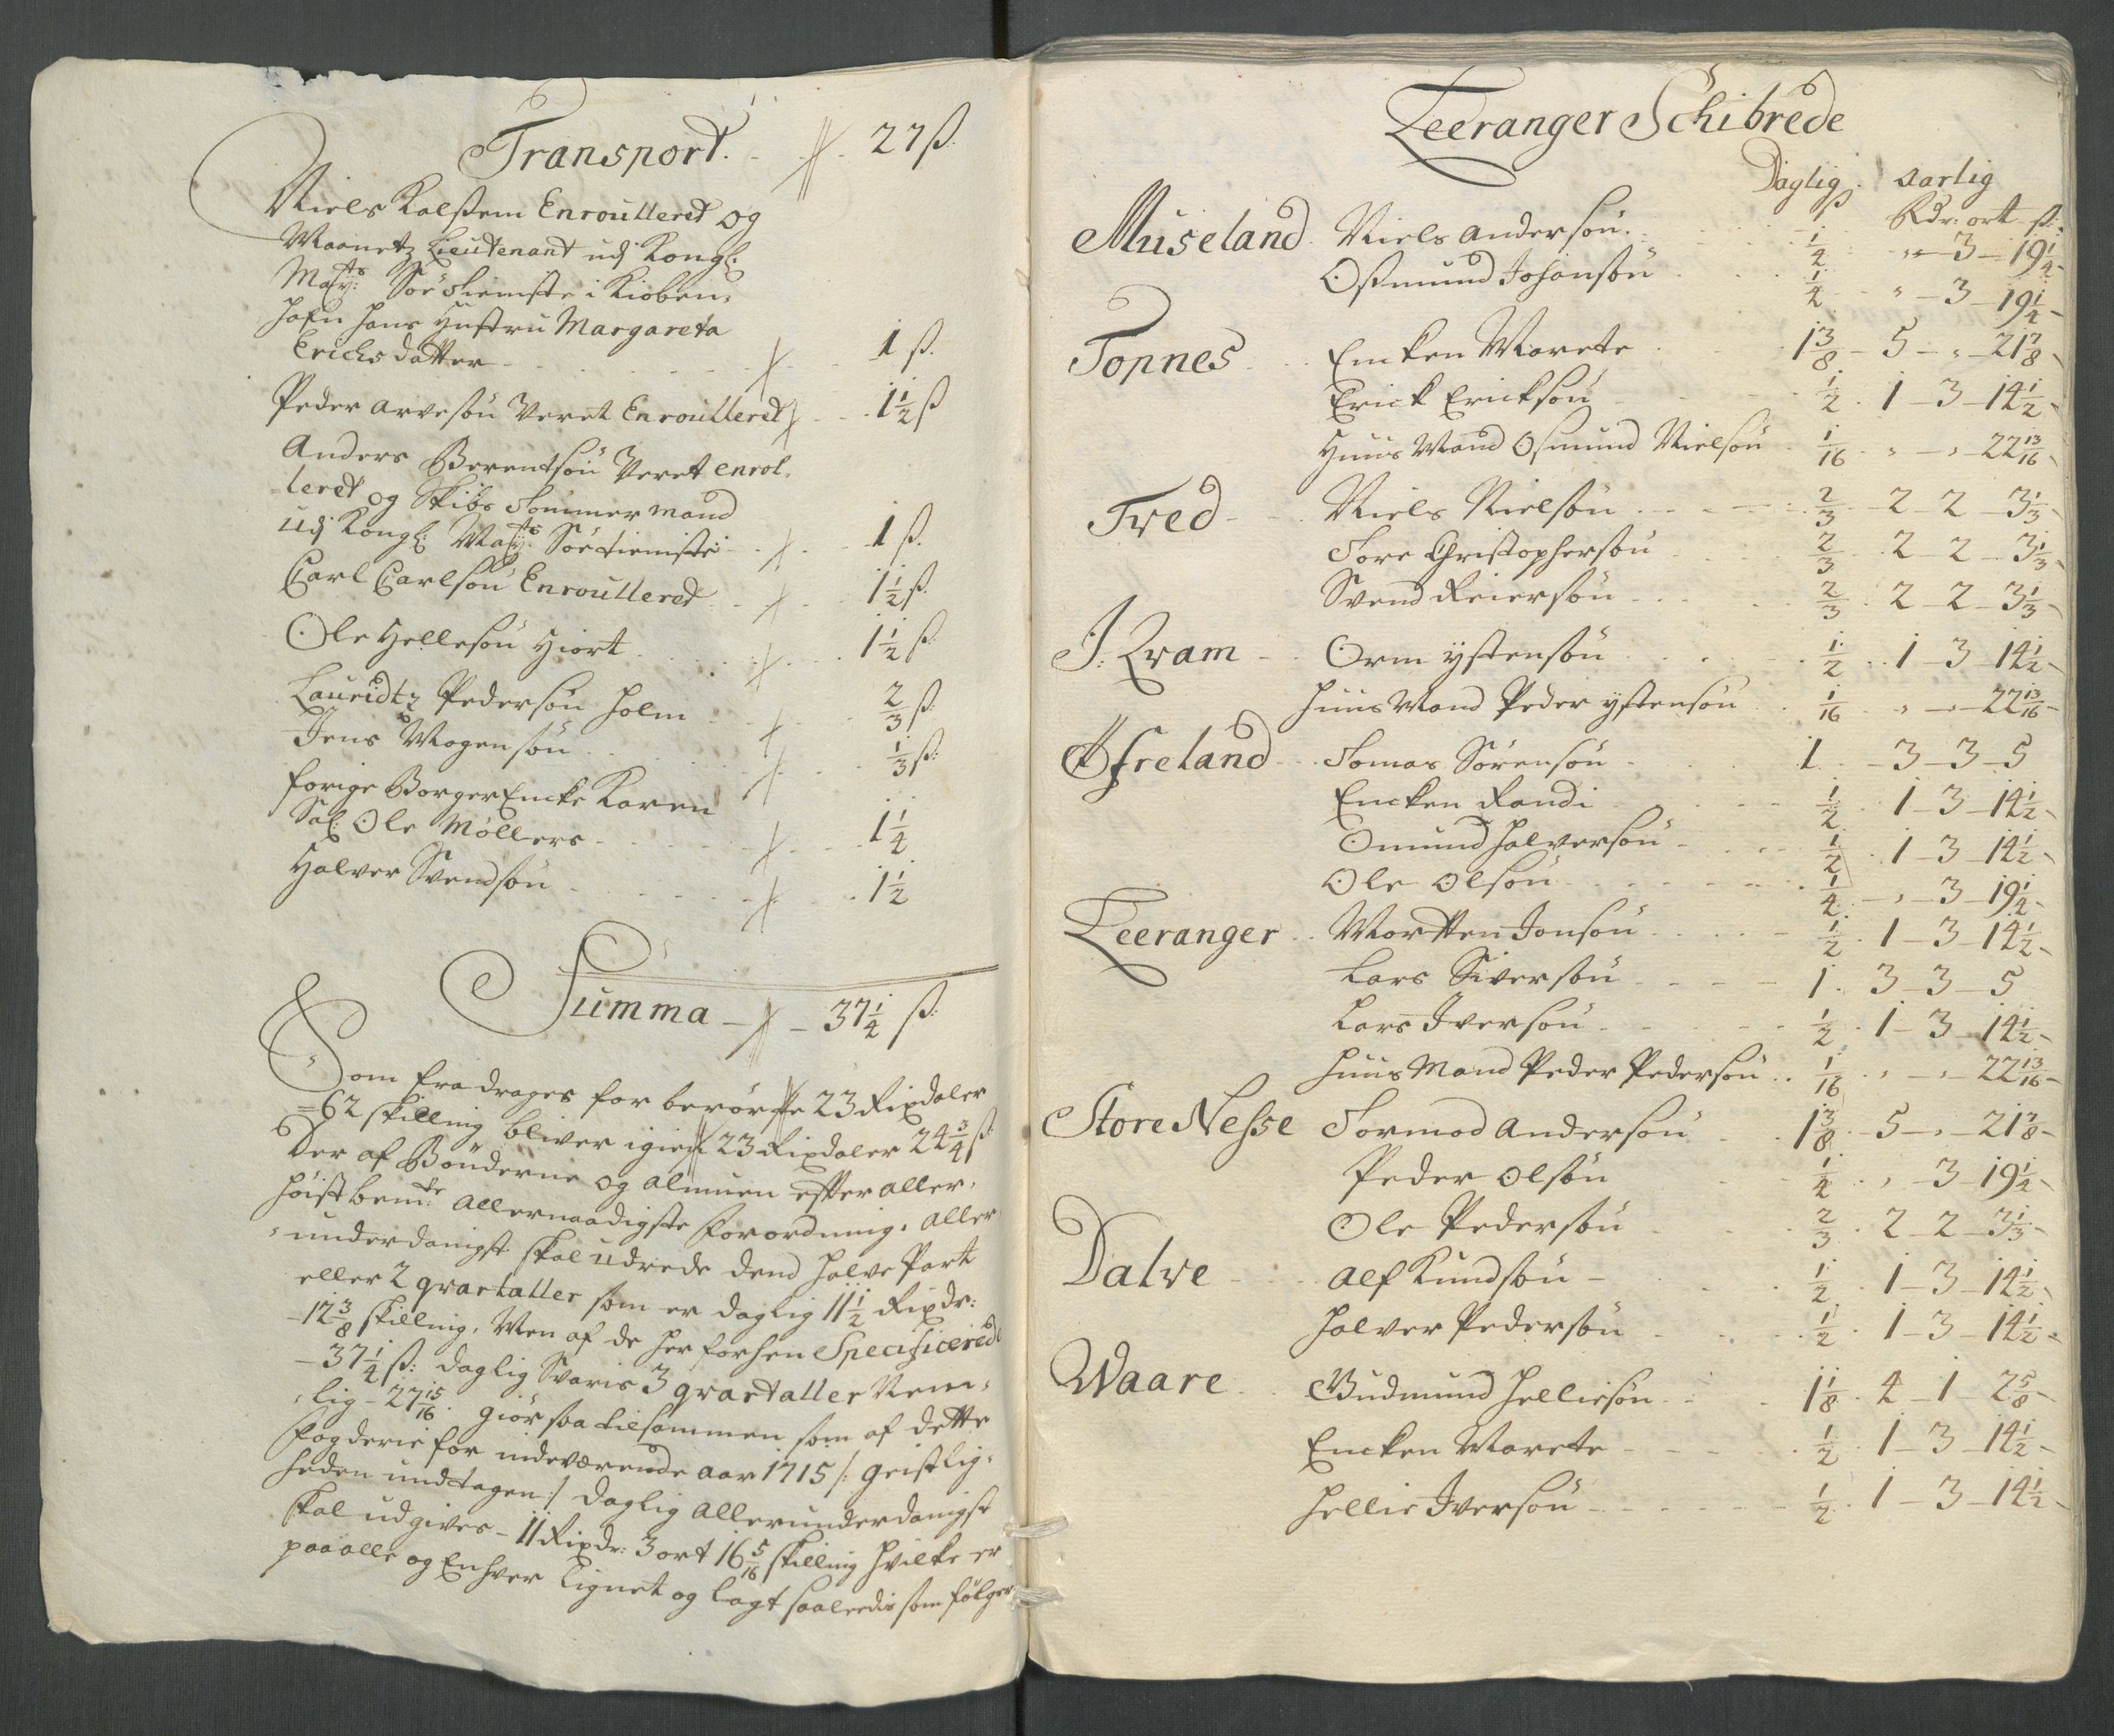 Transport. 27 ß.
Niels Kalßem Enroulleret og
Maanetz Lieutenant udj Kongl:
Mayts: Söe tieniste i Kiöben,
hafn hans Hustru Margareta
Erichsdatter 1 ß.
Peder Arvesön Veret Enroulleret 1 1/2 ß
Anders Berentsön Veret enrol-
leret og Skibs Tömmermand
udj Kongl: Mayts Söe tieniste 1 ß.
Carl Carlsön Enroulleret 1 1/2 ß.
Ole Hellesön Hiort 1 1/2 ß.
Lauridtz Pedersön Holm 2/3 ß.
Jens Mogensön 1/3 ß:
forige Borger Encke Karen
Sal: Ole Møllers 1 1/4
Halver Svendsön 1 1/2
Summa 37 1/4 ß:
Som fradrages for berörte 23 Rixdaler
62 skilling bliver igien 23 Rixdaler 24 3/4 ß
Der af Bönderne og almuen efter aller,
höist bemte: allernaadigste forordning, aller
underdanigst skal udrede dend halve Part
eller 2 qvartaller som er daglig 11 1/2 Rixdr:
12 3/8 skilling, Men af de her forhen Specificerede
37 1/4 ß: daglig Svaris 3 qvartaller Nem,
lig 27 15/16. giör saa tilsammen som af dette
fogderie for indeværende aar 1715 /: Geistlig,
heden undtagen :/ daglig allerunderdanigst
skal udgives 11 Rixdr: 3 ort 16 5/16 skilling hvilke er
paa alle og Enhver lignet og lagt saaledis som fölger
Leeranger Schibrede
Daglig aarlig
ß Rdr: ort ß:
Museland Niels Andersön. 1/4 " 3 19 1/4
Oßmund Johansön 1/4 " 3 19 1/4
Tonnes Encken Marete 1 3/8 5 " 21 7/8
Erick Ericksön 1/2 1 3 14 1/2
Huus Mand Osmund Nielsön 1/16 " " 22 13/16
Tved Niels Nielsön 2/3 2 2 3 1/3
Tore Christophersön 2/3 2 2 3 1/3
Svend Reiersön 2/3 2 2 3 1/3
I: Qvam Orm ystensön 1/2 1 3 14 1/2
Huus Mand Peder ystensön 1/16 " " 22 13/16
Øfreland Tomas Sörensön 1 3 3 5
Encken Randi 1/2 1 3 14 1/2
Omund Halversön 1/2 1 3 14 1/2
Ole Olsön 1/4 " 3 19 1/4
Leeranger Mortten Jonsön 1/2 1 3 14 1/2
Lars Siversön 1 3 3 5
Lars Iversön 1/2 1 3 14 1/2
Huus Mand Peder Pedersön 1/16 " " 22 13/16
Store Nesse Tormod Andersön 1 3/8 5 " 21 7/8
Peder Olsön 1/4 " 3 19 1/4
Ole Pedersön 2/3 2 2 3 1/3
Dalve Alf Knudsön 1/2 1 3 14 1/2
Halver Pedersön 1/2 1 3 14 1/2
Waare Gudmund Helliesön 1 1/8 4 1 2 5/8
Encken Marete 1/2 1 3 14 1/2
Hellie Iversön 1/2 1 3 14 1/2